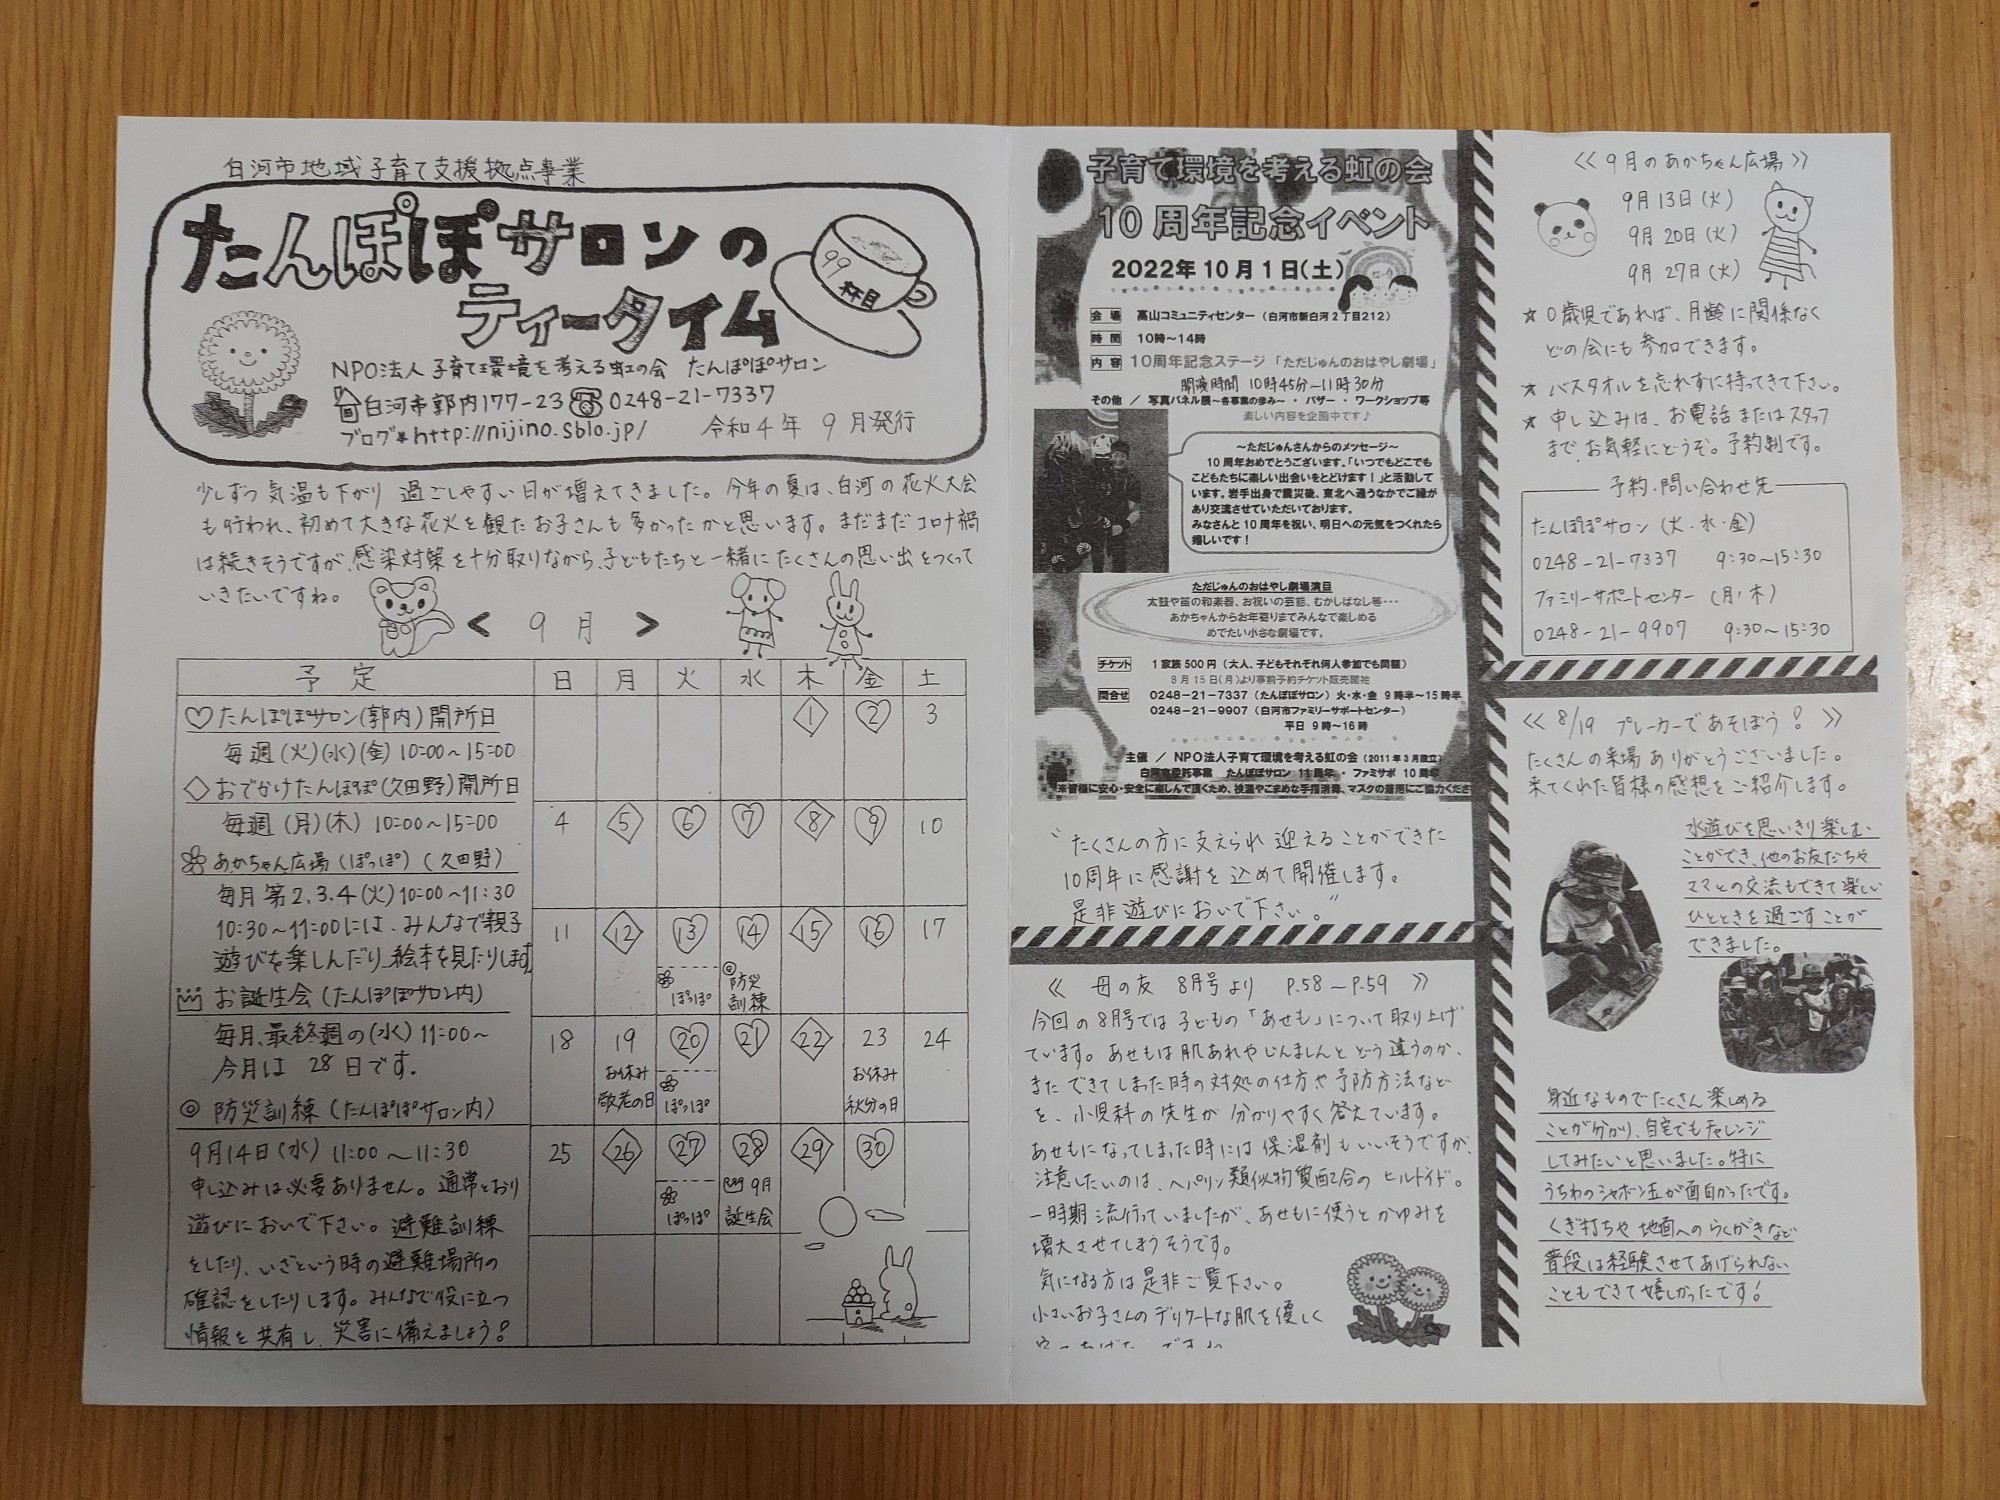 白河市地域子育て支援拠点事業
たんぽぽサロンの
ティータイム
99
杯目
NPO法人 子育て環境を考える虹の会 たんぽぽサロン
白河市郭内177-23 0248-21-7337
ブログ http://nijino.sblo.jp/ 令和4年 9月発行
少しずつ気温も下がり 過ごしやすい日が増えてきました。今年の夏は、白河の花火大会
も行われ、初めて大きな花火を観たお子さんも多かったかと思います。まだまだコロナ禍
は続きそうですが、感染対策を十分取りながら、子どもたちと一緒にたくさんの思い出をつくって
いきたいですね。
< 9月 >
予定 日 月 火 水 木 金 土
♡たんぽぽサロン(郭内)開所日
毎週(火)(水)(金) 10:00~15:00
◇おでかけたんぽぽ(久田野)開所日
毎週(月)(木) 10:00~15:00
あかちゃん広場(ぽっぽ)(久田野)
毎月第2.3.4(火)10:00~11:30
10:30~11:00には、みんなで親子
遊びを楽しんだり、絵本を見たりします
お誕生会(たんぽぽサロン内)
毎月、最終週の(水)11:00~
今月は 28日です.
◎防災訓練(たんぽぽサロン内)
9月14日(水) 11:00~11:30
申し込みは必要ありません。通常どおり
遊びにおいで下さい。避難訓練
をしたり、いざという時の避難場所の
確認をしたりします。みんなで役に立つ
情報を共有し、災害に備えましょう!
1 2 3
4 5 6 7 8 9 10
11 12 13 14 15 16 17
ぽっぽ
◎防災
訓練
18 19 20 21 22 23 24
お休み
敬老の日
ぽっぽ
お休み
秋分の日
25 26 27 28 29 30
ぽっぽ
9月
誕生会
子育て環境を考える虹の会
10周年記念イベント
2022年10月1日(土)
会場 高山コミュニティセンター(白河市新白河2丁目212)
時間 10時~14時
内容 10周年記念ステージ「ただじゅんのおはやし劇場」
開演時間 10時45分-11時30分
その他 / 写真パネル展~各事業の歩み~ ・ バザー ・ ワークショップ等
楽しい内容を企画中です♪
~ただじゅんさんからのメッセージ~
10周年おめでとうございます。「いつでもどこでも
こどもたちに楽しい出会いをとどけます!」と活動して
います。岩手出身で震災後、東北へ通うなかでご縁が
あり交流させていただいております。
みなさんと10周年を祝い、明日への元気をつくれたら
嬉しいです!
ただじゅんのおはやし劇場演目
太鼓や笛の和楽器、お祝いの芸能、むかしばなし等・・・
あかちゃんからお年寄りまでみんなで楽しめる
めでたい小さな劇場です。
チケット 1家族500円(大人、子どもそれぞれ何人参加でも同額)
8月15日(月)より事前予約チケット販売開始
問合せ 0248-21-7337(たんぽぽサロン)火・水・金 9時半~15時半
0248-21-9907(白河市ファミリーサポートセンター)
平日 9時~16時
主催 / NPO法人子育て環境を考える虹の会(2011年3月設立)
白河市委託事業 たんぽぽサロン 11周年 ・ ファミサポ 10周年
※皆様に安心・安全に楽しんで頂くため、検温やこまめな手指消毒、マスクの着用にご協力くださ
"たくさんの方に支えられ 迎えることができた
10周年に感謝を込めて開催します。
是非遊びにおいで下さい。"
≪ 母の友 8月号より P.58~P.59 ≫
今回の8月号では子どもの「あせも」について取り上げ
ています。あせもは肌あれやじんましんとどう違うのか、
またできてしまった時の対処の仕方や予防方法など
を、小児科の先生が分かりやすく答えています。
あせもになってしまった時には保湿剤もいいそうですが、
注意したいのは、ヘパリン類似物質配合のヒルドイド。
一時期流行っていましたが、あせもに使うとかゆみを
増大させてしまうそうです。
気になる方は是非ご覧下さい。
小さいお子さんのデリケートな肌を優しく
≪9月のあかちゃん広場≫
9月13日(火)
9月20日(火)
9月27日(火)
★0歳児であれば、月齢に関係なく
どの会にも参加できます。
★バスタオルを忘れずに持ってきて下さい。
★申し込みは、お電話またはスタッフ
まで、お気軽にどうぞ。予約制です。
予約・問い合わせ先
たんぽぽサロン(火・水・金)
0248-21-7337 9:30~15:30
ファミリーサポートセンター (月・木)
0248-21-9907 9:30~15:30
≪ 8/19 プレーカーであそぼう! ≫
たくさんの来場ありがとうございました。
来てくれた皆様の感想をご紹介します。
水遊びを思いきり楽しむ
ことができ、他のお友だちや
ママとの交流もできて楽しい
ひとときを過ごすことが
できました。
身近なものでたくさん楽しめる
ことが分かり、自宅でもチャレンジ
してみたいと思いました。特に
うちわのシャボン玉が面白かったです。
くぎ打ちや地面へのらくがきなど
普段は経験させてあげられない
こともできて嬉しかったです!